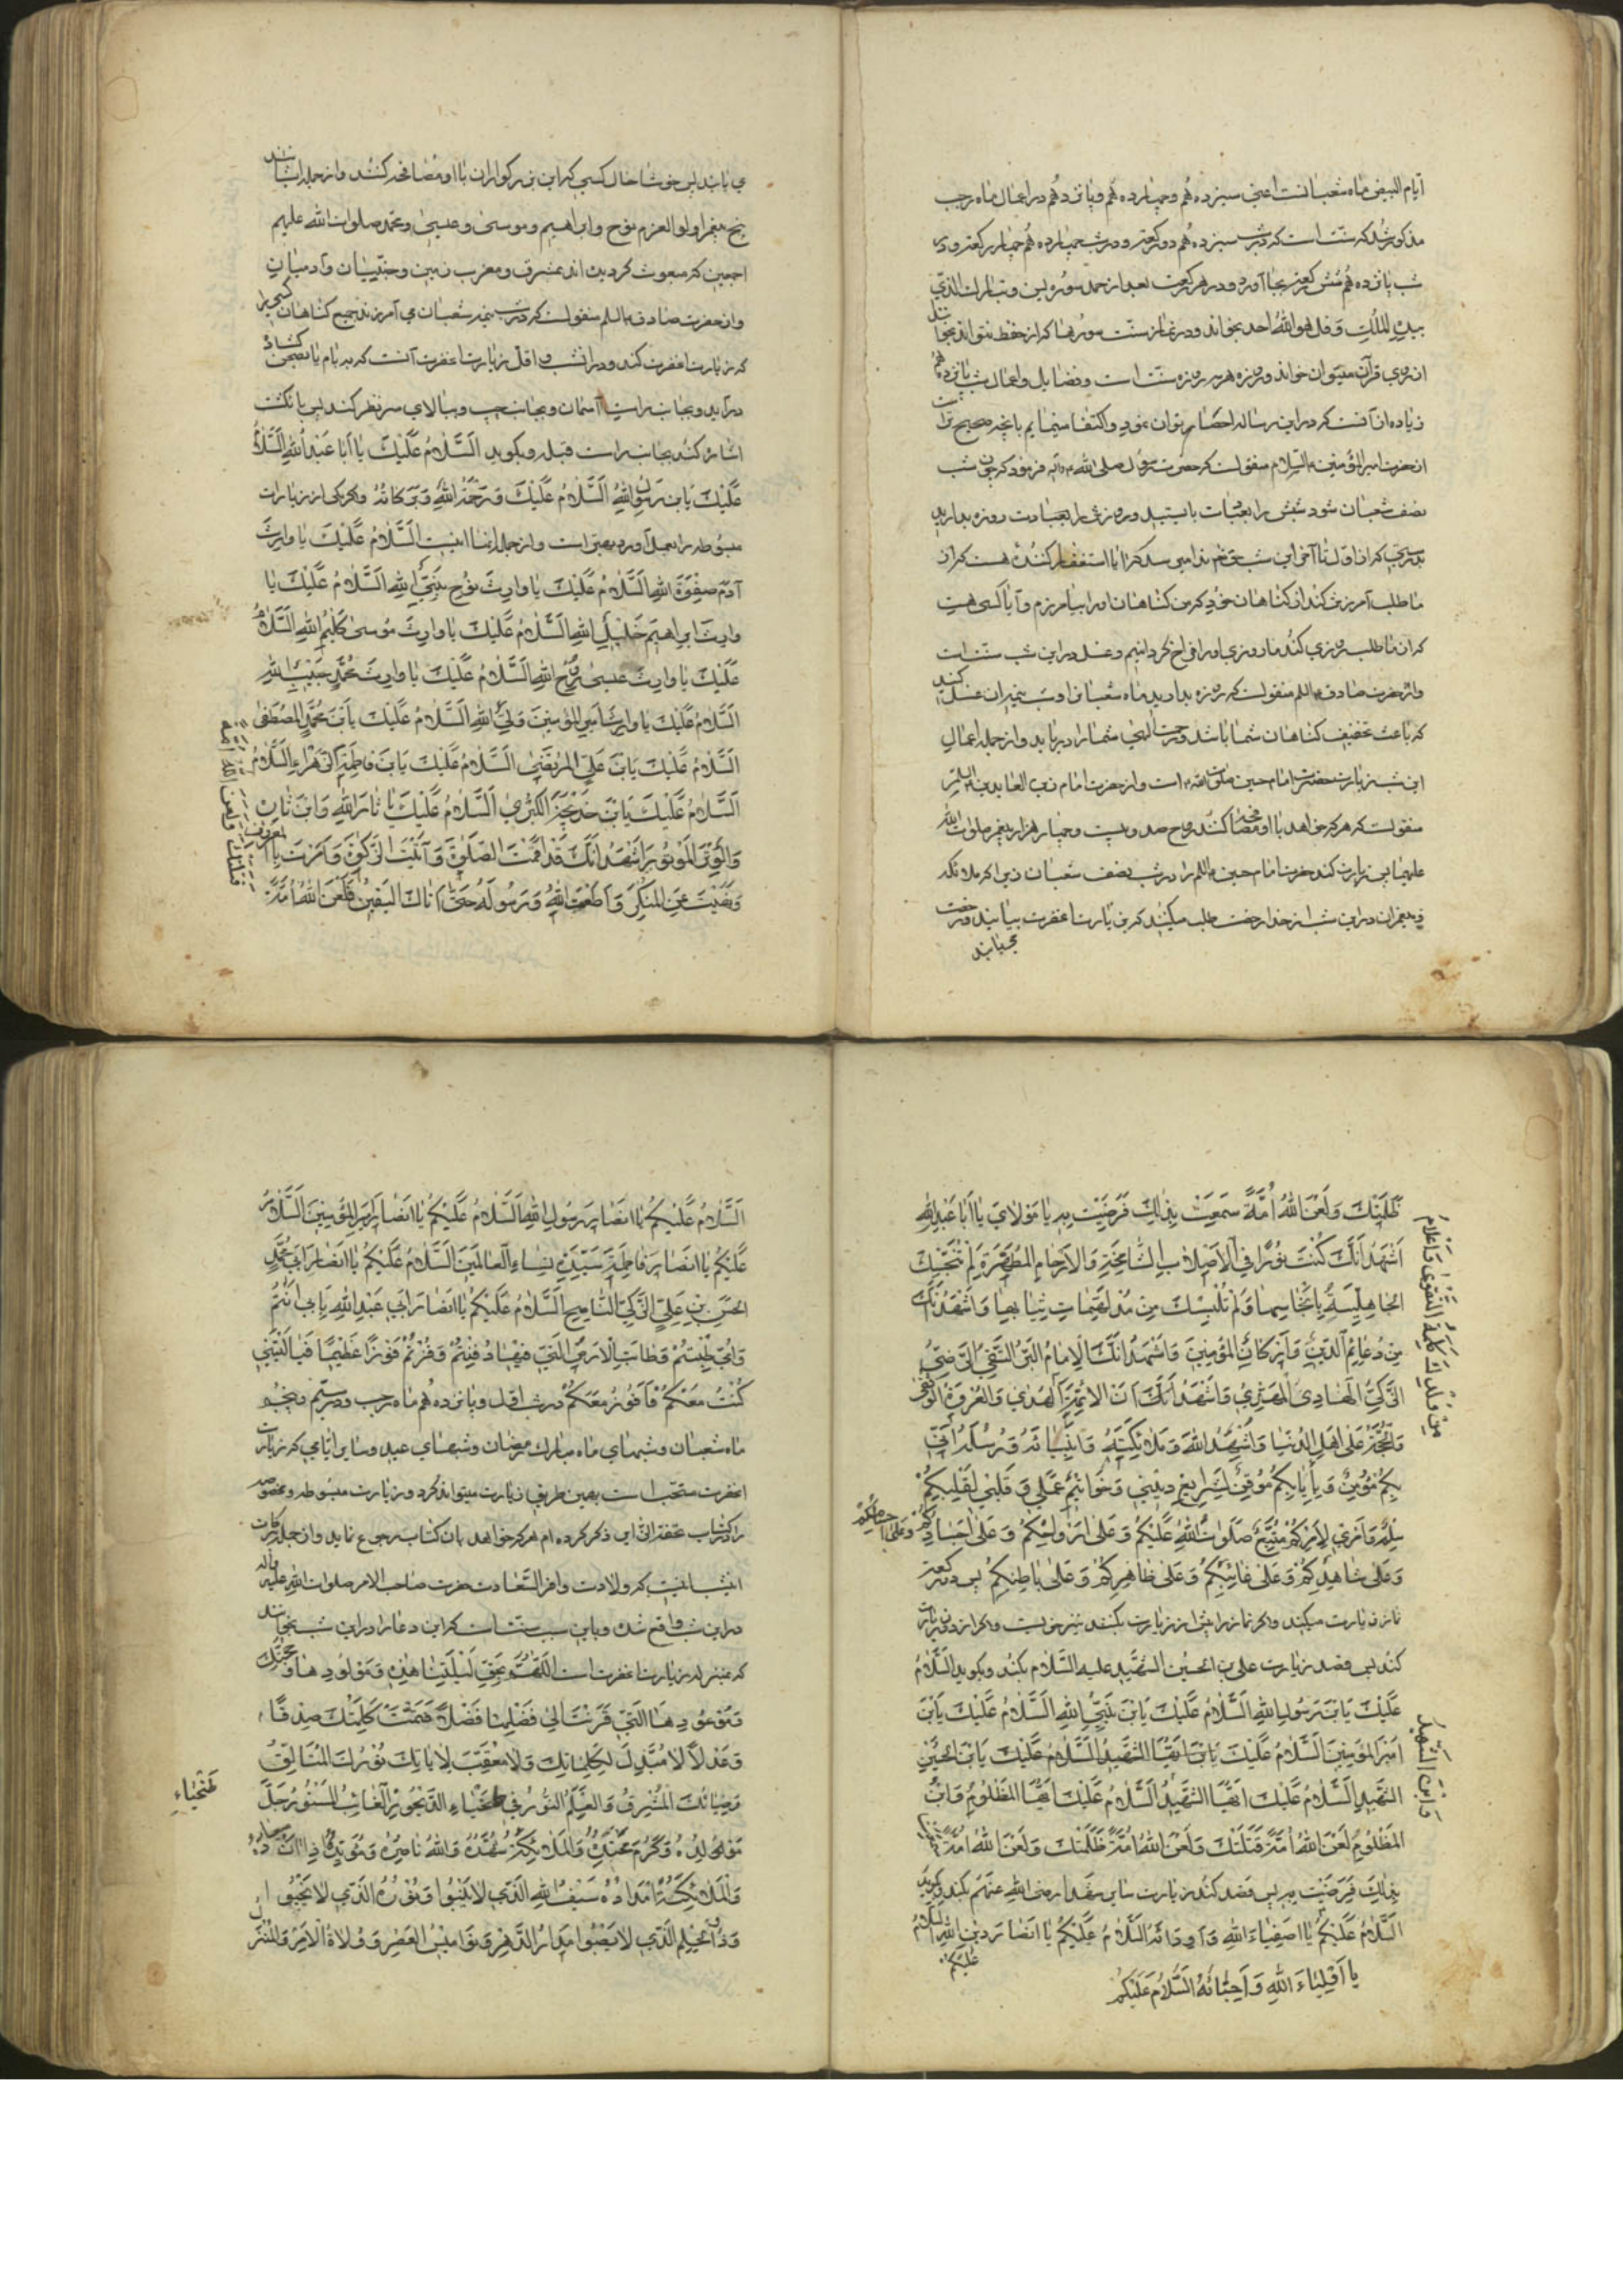 ایام البیض ماه شعبانست اعنی سیزدهم و چهاردهم و پانزدهم در اعمال ماه رجب
مذکور شد که سنّت است که در شب سیزدهم دو رکعت و در شب چهاردهم چهار رکعت و در
شب پانزدهم شش رکعت بجا آورد و در هر رکعت بعد از حمد سوره یس و تبارک الذی
بیده الملک و قل هو الله احد بخواند و در نماز سنّت سورها که از حفظ نتواند بخواند
از روی قرآن میتوان خواند و روزه هر سه روزه سنّت است و فضایل و اعمال شب پانزدهم
زیاده از آنست که در این رساله احصا توان نمود و اکتفا مینمایم بآنچه صحیح تر است
از حضرت امیر المؤمنین علیه السلام منقولست که حضرت رسول صلی الله علیه و آله فرمود که چون شب
نصف شعبان شود شبش را بعبادت بایستید و روزش را بعبادت روزه بدارید
بدرستی که از اول تا آخر این شب حق تعالی ندا میرسد که آیا استغفار کننده هست که از
ما طلب آمرزش کند از گناهان خود که من گناهان او را بیامرزم و آیا کسی هست
که از ما طلب روزی کند ما روزی او را فراخ گردانیم و غسل در این شب سنّت است
و از حضرت صادق علیه السلم منقولست که روزه بدارید ماه شعبان را و شب نیمه آن غسل کنید
که باعث تخفیف گناهان شما باشد و رحمت الهی شما را دریابد و از جمله اعمال
این شب زیارت حضرت امام حسین صلوات الله علیه است و از حضرت امام زین العابدین علیه السلم
منقولست که هر که خواهد با او مصافحه کنند روح صد و بیست و چهار هزار پیغمبر صلوات الله
علیهم پس زیارت کند حضرت امام حسین علیه السلم را در شب نصف شعبان زیرا که ملائکه
و پیغمبران در این شب از خدا رخصت طلب میکنند که بزیارت آنحضرت بیایند و رخصت
می یابند
می یابند پس خوشا حال کسی که این بزرگواران با او مصافحه کنند و از جمله ایشانند
پنج پیغمبر اولو العزم نوح و ابراهیم و موسی و عیسی و محمد صلوات الله علیهم
اجمعین که مبعوث گردیده اند بمشرق و مغرب زمین و جنّیان و آدمیان
و از حضرت صادق علیه السلم منقولست که در شب نیمه شعبان می آمرزند جمیع گناهان کسی را
که زیارت آنحضرت کند و در آن شب و اقل زیارت آنحضرت آنست که به بام یا بصحن گشاده
در آید و بجانب راست آسمان و بجانب چپ و ببالای سر نظر کند پس بانگشت
اشاره کند بجانب راست قبله و بگوید اَلسَّلامُ عَلَیْكَ یا اَبا عَبْدِ اللهِ اَلسَّلامُ
عَلَیْكَ یَابنَ رَسُولِ اللهِ اَلسَّلامُ عَلَیْكَ وَ رَحْمَةُ اللهِ وَ بَرَکاتُهُ و اگر یکی از زیارات
مبسوطه را بعمل آورد بهتر است و از جمله آنها اینست اَلسَّلامُ عَلَیْكَ یا وارِثَ
آدَمَ صِفْوَةِ اللهِ اَلسَّلامُ عَلَیْكَ یا وارِثَ نُوحٍ نَبِیِّ اللهِ اَلسَّلامُ عَلَیْكَ یا
وارِثَ اِبراهیمَ خَلیلِ اللهِ اَلسَّلامُ عَلَیْكَ یا وارِثَ مُوسی کَلیمِ اللهِ اَلسَّلامُ
عَلَیْكَ یا وارِثَ عیسی رُوحِ اللهِ اَلسَّلامُ عَلَیْكَ یا وارِثَ مُحَمَّدٍ حَبیبِ اللهِ
اَلسَّلامُ عَلَیْكَ یا وارِثَ اَمیرِ المُؤمِنینَ وَلِیِّ اللهِ اَلسَّلامُ عَلَیْكَ یَابنَ مُحَمَّدٍ المُصْطَفی
اَلسَّلامُ عَلَیْكَ یَابنَ عَلِیٍّ المُرتَضی اَلسَّلامُ عَلَیْكَ یَابنَ فاطِمَةَ الزَّهْراءِ اَلسَّلامُ
اَلسَّلامُ عَلَیْكَ یَابنَ خَدیجَةَ الکُبْری اَلسَّلامُ عَلَیْكَ یا ثارَ اللهِ وَ ابنَ ثارِهِ
وَ الوِتْرَ المَوْتُورَ اَشْهَدُ اَنَّكَ قَدْ اَقَمْتَ الصَّلوةَ وَ آتَیْتَ الزَّکوةَ وَ اَمَرْتَ بِالمَعْرُوفِ
وَ نَهَیْتَ عَنِ المُنْکَرِ وَ اَطَعْتَ اللهَ وَ رَسُولَهُ حَتّی اَتاكَ الیَقینُ فَلَعَنَ اللهُ اُمَّةً
قَتَلَتْكَ وَ لَعَنَ اللهُ اُمَّةً
ظَلَمَتْكَ وَ لَعَنَ اللهُ اُمَّةً سَمِعَتْ بِذلِكَ فَرَضِیَتْ بِهِ یا مَوْلایَ یا اَبا عَبْدِ اللهِ
اَشْهَدُ اَنَّكَ کُنْتَ نُورًا فِی الاَصْلابِ الشّامِخَةِ وَ الاَرْحامِ المُطَهَّرَةِ لَمْ تُنَجِّسْكَ
الجاهِلِیَّةُ بِاَنْجاسِها وَ لَمْ تُلْبِسْكَ مِنْ مُدْلَهِمّاتِ ثِیابِها وَ اَشْهَدُ اَنَّكَ
مِنْ دَعائِمِ الدّینِ وَ اَرْکانِ المُؤمِنینَ وَ اَشْهَدُ اَنَّكَ الاِمامُ البَرُّ التَّقِیُّ الرَّضِیُّ
الزَّکِیُّ الهادِی المَهْدِیُّ وَ اَشْهَدُ اَنَّ الاَئِمَّةَ
مِنْ وُلْدِكَ کَلِمَةُ التَّقْوی وَ اَعْلامُ
الهُدی وَ العُرْوَةُ الوُثْقی
وَ الحُجَّةُ عَلی اَهْلِ الدُّنْیا وَ اُشْهِدُ اللهَ وَ مَلائِکَتَهُ وَ اَنْبِیائَهُ وَ رُسُلَهُ اَنّی
بِکُمْ مُؤمِنٌ وَ بِاِیابِکُمْ مُوقِنٌ بِشَرایِعِ دینی وَ خَواتیمِ عَمَلی وَ قَلْبی لِقَلْبِکُمْ
سِلْمٌ وَ اَمْری لِاَمْرِکُمْ مُتَّبِعٌ صَلَواتُ اللهِ عَلَیْکُمْ وَ عَلی اَرْواحِکُمْ وَ عَلی اَجْسادِکُمْ وَ عَلی اَجْسامِکُمْ
وَ عَلی شاهِدِکُمْ وَ عَلی غائِبِکُمْ وَ عَلی ظاهِرِکُمْ وَ عَلی باطِنِکُمْ پس دو رکعت
نماز زیارت میکند و اگر نماز را پیش از زیارت بکنند نیز خوبست و اگر از دور زیارت
کند پس قصد زیارت علی بن الحسین الشهید علیه السّلام بکند و بگوید اَلسَّلامُ
عَلَیْكَ یَابنَ رَسُولِ اللهِ اَلسَّلامُ عَلَیْكَ یَابنَ نَبِیِّ اللهِ اَلسَّلامُ عَلَیْكَ یَابنَ
اَمیرِ المُؤمِنینَ اَلسَّلامُ عَلَیْكَ یَابنَ الحُسَیْنِ
الشَّهیدِ اَلسَّلامُ عَلَیْكَ اَیُّهَا الشَّهیدُ
وَ ابنَ الشَّهیدِ
اَلسَّلامُ عَلَیْكَ اَیُّهَا المَظْلُومُ وَ ابنَ
المَظْلُومِ لَعَنَ اللهُ اُمَّةً قَتَلَتْكَ وَ لَعَنَ اللهُ اُمَّةً ظَلَمَتْكَ وَ لَعَنَ اللهُ اُمَّةً سَمِعَتْ
بِذلِكَ فَرَضِیَتْ بِهِ پس قصد کند زیارت سایر شهدا رضی الله عنهم بکند و بگوید
اَلسَّلامُ عَلَیْکُمْ یا اَصْفِیاءَ اللهِ وَ اَوِدّائَهُ اَلسَّلامُ عَلَیْکُمْ یا اَنْصارَ دینِ اللهِ اَلسَّلامُ عَلَیْکُمْ
یا اَوْلِیاءَ اللهِ وَ اَحِبّائَهُ اَلسَّلامُ عَلَیْکُمْ
اَلسَّلامُ عَلَیْکُمْ یا اَنْصارَ رَسُولِ اللهِ اَلسَّلامُ عَلَیْکُمْ یا اَنْصارَ اَمیرِ المُؤمِنینَ اَلسَّلامُ
عَلَیْکُمْ یا اَنْصارَ فاطِمَةَ سَیِّدَةِ نِساءِ العالَمینَ اَلسَّلامُ عَلَیْکُمْ یا اَنْصارَ اَبی مُحَمَّدٍ
الحَسَنِ بنِ عَلِیٍّ الزَّکِیِّ النّاصِحِ اَلسَّلامُ عَلَیْکُمْ یا اَنْصارَ اَبی عَبْدِ اللهِ بِاَبی اَنْتُمْ
وَ اُمّی طِبْتُمْ وَ طابَتِ الاَرْضُ الَّتی فیها دُفِنْتُمْ وَ فُزْتُمْ فَوْزًا عَظیمًا فَیا لَیْتَنی
کُنْتُ مَعَکُمْ فَاَفُوزَ مَعَکُمْ در شب اول و پانزدهم ماه رجب و در سیم و پنجم
ماه شعبان و شبهای ماه مبارک رمضان و شبهای عید و سایر ایامی که زیارت
آنحضرت مستحب است بهمین طریق زیارت میتواند کرد و زیارت مبسوطه و مخصوصه
را در کتاب تحفة الزائر ذکر کرده ام هر که خواهد بآن کتاب رجوع نماید و از جمله برکات
این شب اینست که ولادت وافر السّعادت حضرت صاحب الامر صلوات الله علیه و آله
در این شب واقع شده و باین سبب سنّت است که این دعا را در این شب بخوانند
که بمنزله زیارت آنحضرت است اَللّهُمَّ بِحَقِّ لَیْلَتِنا هذِهِ وَ مَوْلُودِها وَ حُجَّتِكَ
وَ مَوْعُودِهَا الَّتی قَرَنْتَ اِلی فَضْلِها فَضْلًا فَتَمَّتْ کَلِمَتُكَ صِدْقًا
وَ عَدْلًا لا مُبَدِّلَ لِکَلِماتِكَ وَ لا مُعَقِّبَ لِآیاتِكَ نُورُكَ المُتَاَلِّقُ
وَ ضِیائُكَ المُشْرِقُ وَ العَلَمُ النُّورُ فی طَخْیاءِ الدَّیْجُورِ الغائِبُ المَسْتُورُ جَلَّ
طَخْیاءِ
مَوْلِدُهُ وَ کَرُمَ مَحْتِدُهُ وَ المَلائِکَةُ شُهَّدُهُ وَ اللهُ ناصِرُهُ وَ مُؤَیِّدُهُ اِذا آنَ میعادُهُ
وَ المَلائِکَةُ اَمْدادُهُ سَیْفُ اللهِ الَّذی لا یَنْبُو وَ نُورُهُ الَّذی لا یَخْبُو
وَ ذُو الحِلْمِ الَّذی لا یَصْبُو مَدارُ الدَّهْرِ وَ نَوامیسُ العَصْرِ وَ وُلاةُ الاَمْرِ وَ المُنَزَّلُ